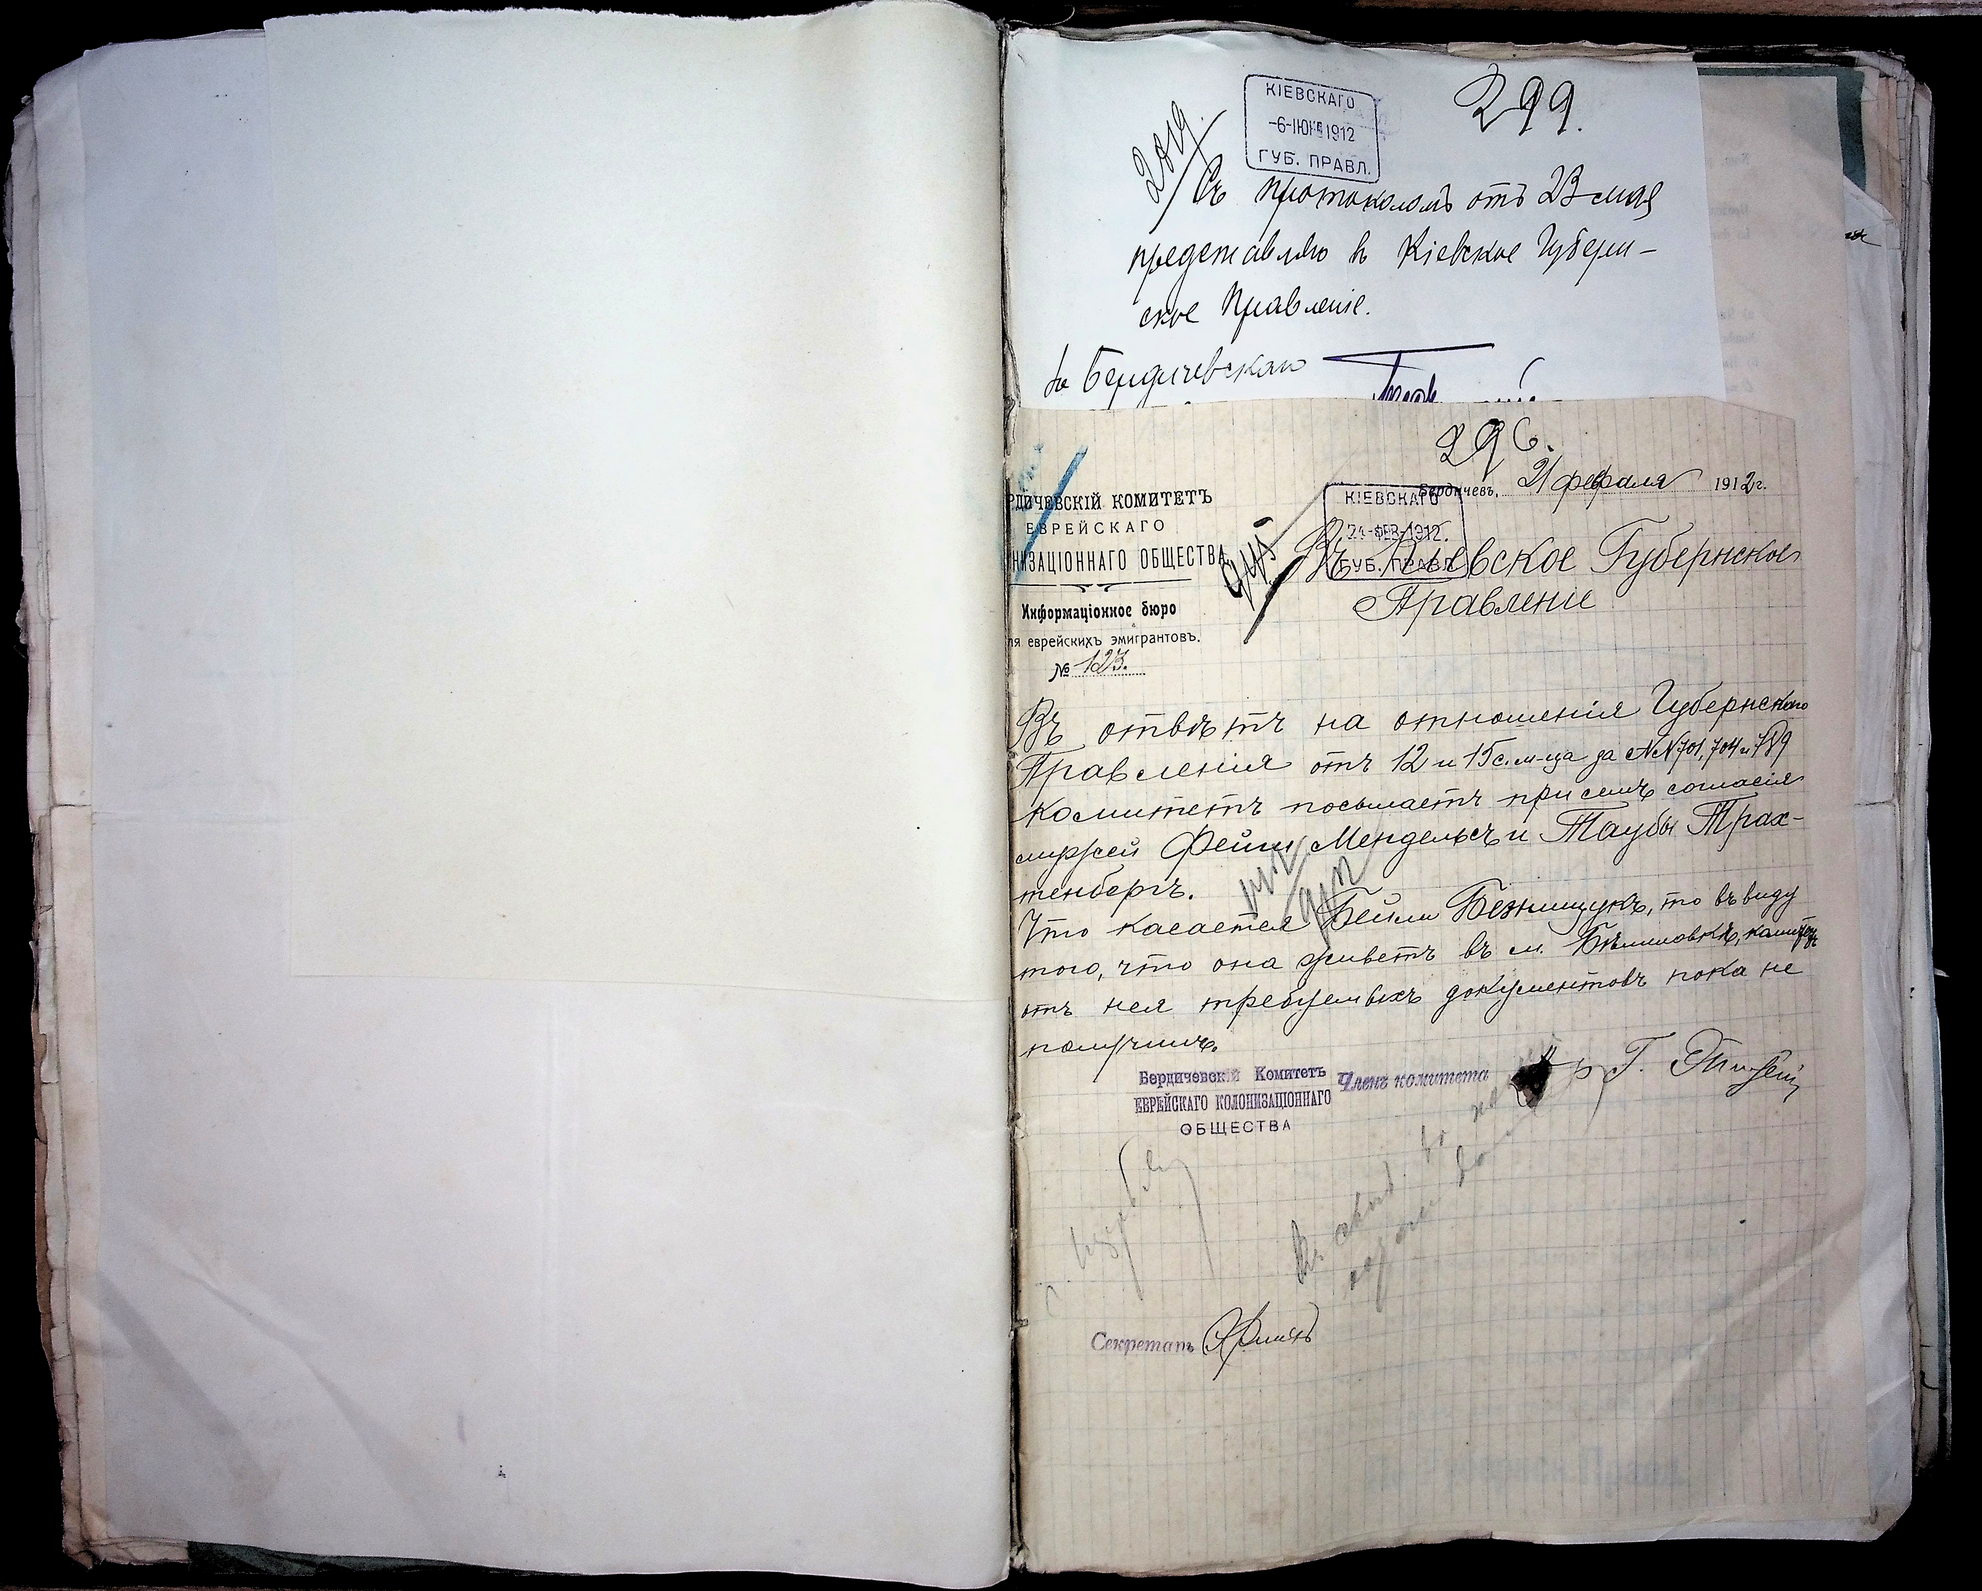 299.
КІЕВСКАГО
-6-ІЮНЯ 1912
ГУБ. ПРАВЛ.
2019
Съ протоколомъ от 23 мая
представляю в Кіевское Губерн-
ское Правленіе.
Бердичевскаго
296.
Бердичевъ, 21 февраля 1912 г.
КІЕВСКАГО
24-ФЕВ-1912.
ГУБ. ПРАВЛ.
РДИЧЕВСКІЙ КОМИТЕТЪ
ЕВРЕЙСКАГО
НИЗАЦІОННАГО ОБЩЕСТВА
Информаціонное бюро
ля еврейскихъ эмигрантовъ.
№ 123.
Въ Кіевское Губернское
Правленіе
Въ отвѣтъ на отношенія Губернскаго
Правленія отъ 12 и 15 с. м-ца за №№ 701, 704 и 789
комитетъ посылаетъ при семъ согласія
мужей Фейги Мендельсъ и Таубы Трах-
тенбергъ.
Что касается Бейли, то въ виду
того, что она живетъ въ м. Бѣлиловкѣ, комитетъ
отъ нея требуемыхъ документовъ пока не
получилъ.
Бердичевскій Комитетъ
ЕВРЕЙСКАГО КОЛОНИЗАЦІОННАГО
ОБЩЕСТВА
Членъ комитета
Секретарь